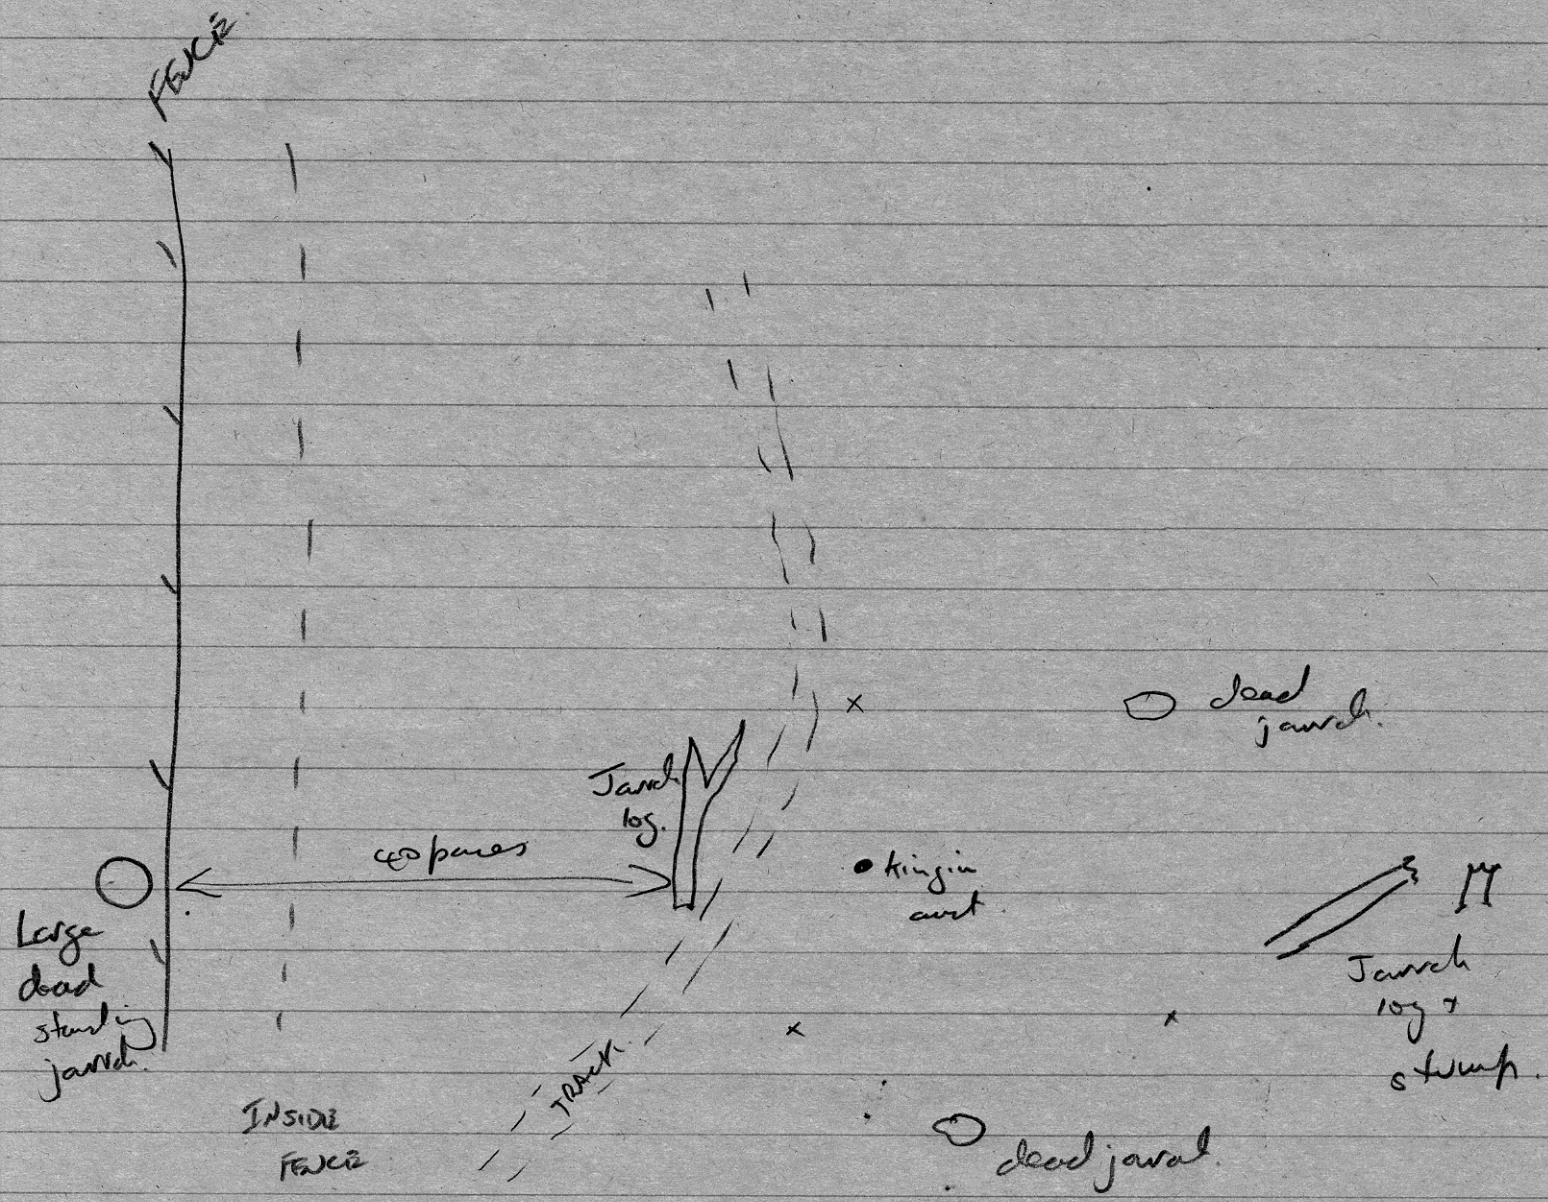 FENCE
dead
jarrah.
Jarrah
log.
40 paces
Large
dead
standing
jarrah.
Jarrah
log +
stump.
TRACK
INSIDE
FENCE
dead jarrah.